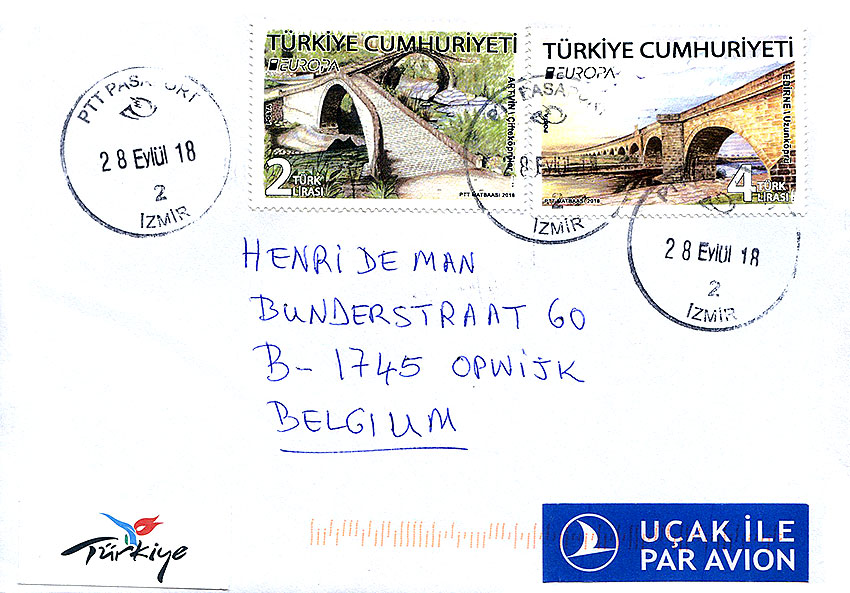 TÜRKİYE CUMHURİYETİ
EUROPA
ARTVİN
2 TÜRK LİRASI
PTT MATBAASI 2018
TÜRKİYE CUMHURİYETİ
EUROPA
EDİRNE / Uzunköprü
4 TÜRK LİRASI
PTT MATBAASI 2018
PTT PASAPORT
28 Eylül 18
2
İZMİR
PASAPORT
28 Eylül
İZMİR
28 Eylül 18
2
İZMİR
HENRI DE MAN
BUNDERSTRAAT 60
B-1745 OPWIJK
BELGIUM
Türkiye
UÇAK İLE
PAR AVION